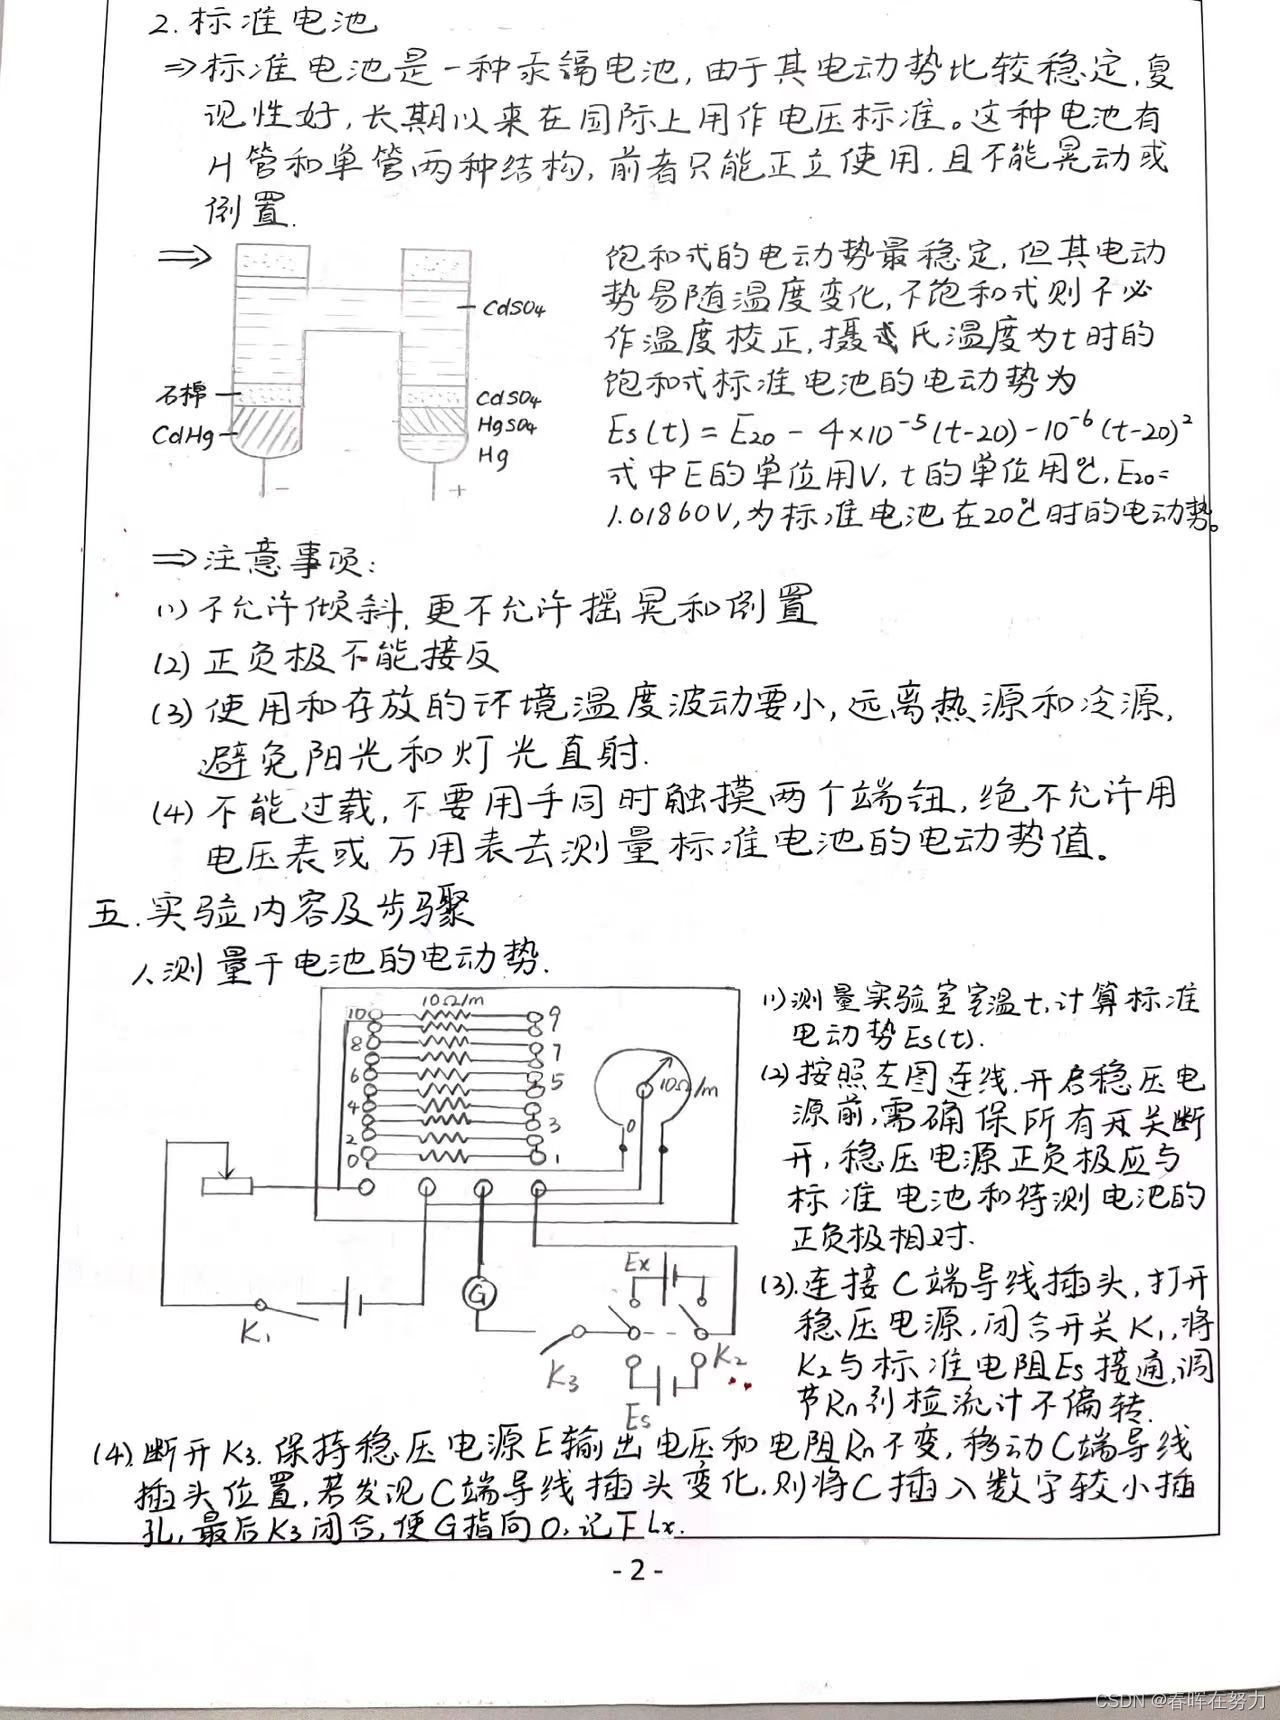 2.标准电池
⇒标准电池是一种汞镉电池,由于其电动势比较稳定,复
现性好,长期以来在国际上用作电压标准。这种电池有
H管和单管两种结构,前者只能正立使用.且不能晃动或
倒置.
⇒
CdSO4
石棉
CdHg
CdSO4
HgSO4
Hg
-
+
饱和式的电动势最稳定,但其电动
势易随温度变化,不饱和式则不必
作温度校正,摄氏温度为t时的
饱和式标准电池的电动势为
Es(t)=E20-4×10⁻⁵(t-20)-10⁻⁶(t-20)²
式中E的单位用V,t的单位用℃,E20=
1.01860V,为标准电池在20℃时的电动势。
⇒注意事项:
(1)不允许倾斜,更不允许摇晃和倒置
(2)正负极不能接反
(3)使用和存放的环境温度波动要小,远离热源和冷源,
避免阳光和灯光直射.
(4)不能过载,不要用手同时触摸两个端钮,绝不允许用
电压表或万用表去测量标准电池的电动势值。
五.实验内容及步骤
1.测量干电池的电动势.
10Ω/m
10
9
8
7
6
5
4
3
2
1
0
10Ω/m
0
K1
G
K3
Ex
K2
Es
(1)测量实验室室温t,计算标准
电动势Es(t).
(2)按照左图连线.开启稳压电
源前,需确保所有开关断
开,稳压电源正负极应与
标准电池和待测电池的
正负极相对.
(3).连接C端导线插头,打开
稳压电源,闭合开关K1,将
K2与标准电阻Es接通,调
节Rn到检流计不偏转.
(4).断开K3.保持稳压电源E输出电压和电阻Rn不变,移动C端导线
插头位置,若发现C端导线插头变化,则将C插入数字较小插
孔,最后K3闭合,使G指向0,记下Lx.
- 2 -
CSDN @春晖在努力